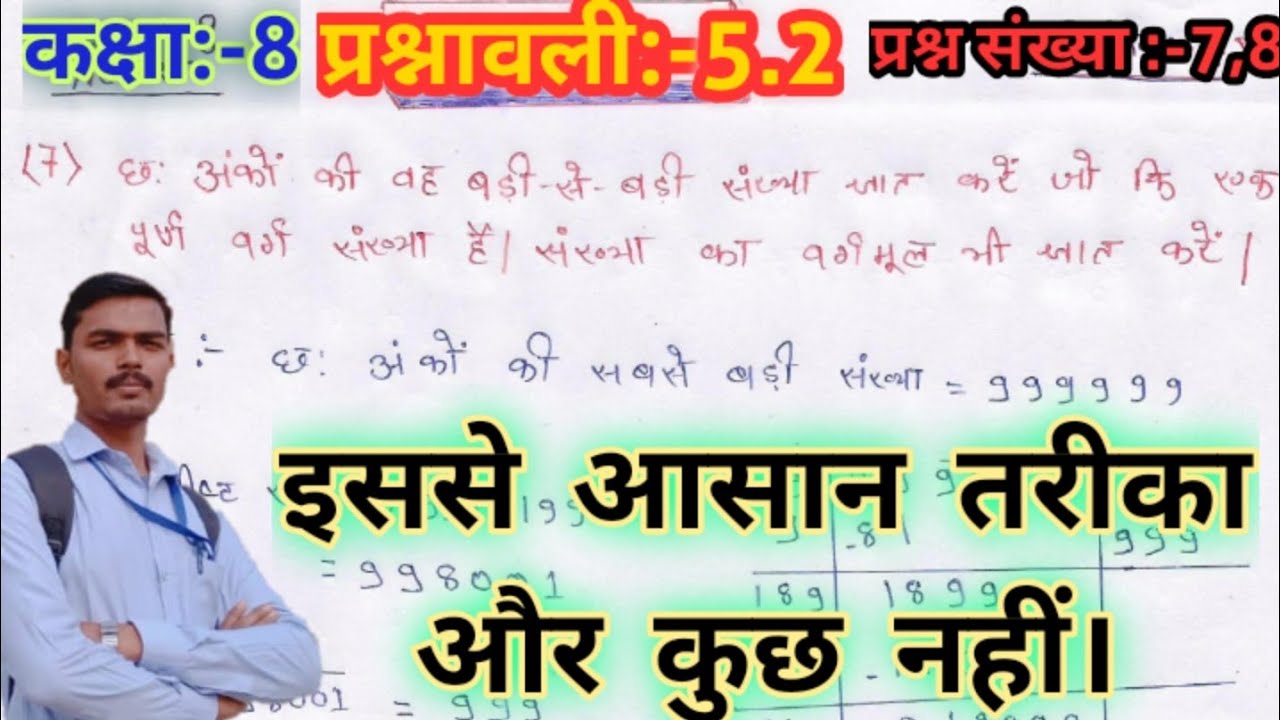 कक्षा:-8 प्रश्नावली:-5.2 प्रश्न संख्या :-7,8
(7) छः अंकों की वह बड़ी-से-बड़ी संख्या ज्ञात करें जो कि एक
पूर्ण वर्ग संख्या है। संख्या का वर्गमूल भी ज्ञात करें।
:- छः अंकों की सबसे बड़ी संख्या = 999999
इससे आसान तरीका
-81 999
= 998001
189 1899
और कुछ नहीं।
= 999